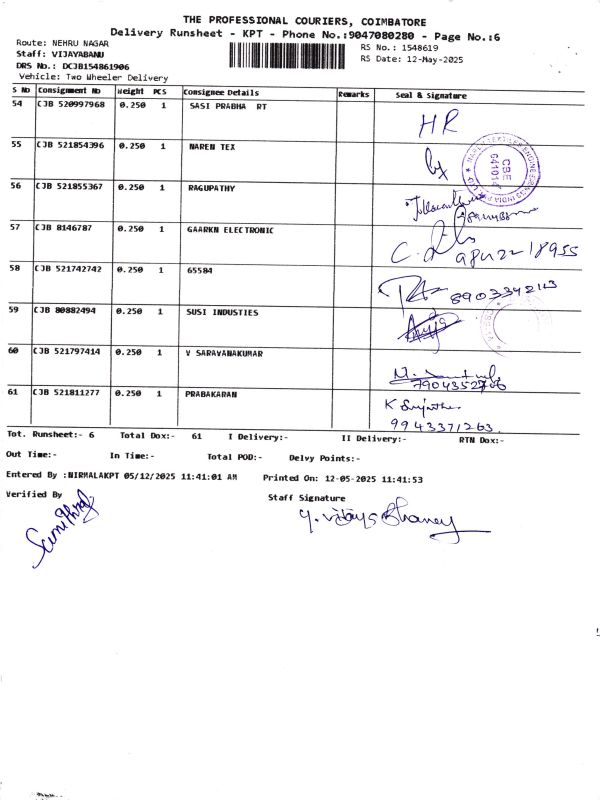 THE PROFESSIONAL COURIERS, COIMBATORE
Delivery Runsheet - KPT - Phone No.:9047080280 - Page No.:6
Route: NEHRU NAGAR
Staff: VIJAYABANU
DRS No.: DCJB154861906
Vehicle: Two Wheeler Delivery
RS No.: 1548619
RS Date: 12-May-2025
S No Consignment No Weight PCS Consignee Details Remarks Seal & Signature
54 CJB 520997968 0.250 1 SASI PRABHA RT
HR
55 CJB 521854396 0.250 1 NAREN TEX
CBE
641014
56 CJB 521855367 0.250 1 RAGUPATHY
57 CJB 8146787 0.250 1 GAARKN ELECTRONIC
58 CJB 521742742 0.250 1 65584
8903342113
59 CJB 80882494 0.250 1 SUSI INDUSTIES
60 CJB 521797414 0.250 1 V SARAVANAKUMAR
61 CJB 521811277 0.250 1 PRABAKARAN
9943371263
Tot. Runsheet:- 6 Total Dox:- 61 I Delivery:- II Delivery:- RTN Dox:-
Out Time:- In Time:- Total POD:- Delvy Points:-
Entered By :NIRMALAKPT 05/12/2025 11:41:01 AM Printed On: 12-05-2025 11:41:53
Verified By Staff Signature